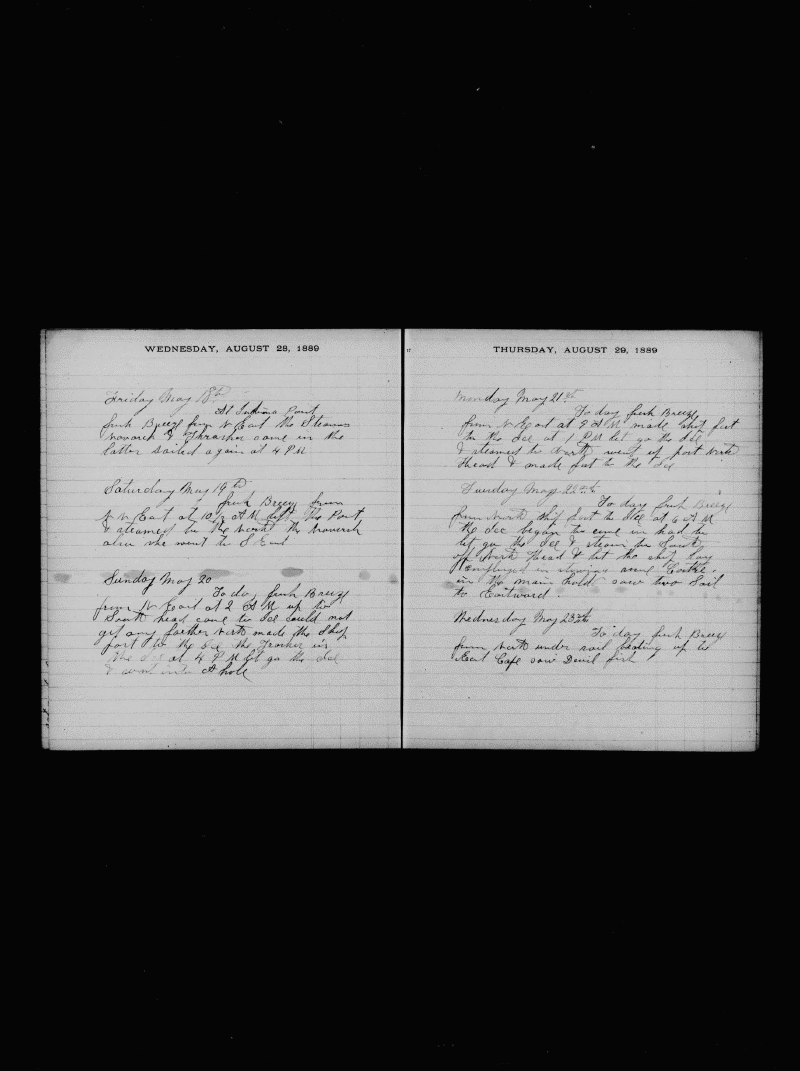 WEDNESDAY, AUGUST 28, 1889
Friday May 18th
At Point
fresh Breeze from N East the Steamers
Navarch & Thrasher came in the
latter sailed again at 4 PM
Saturday May 19th
fresh Breeze from
N N East at 10 ½ AM left The Port
& steamed to the North the Navarch
also she went to S East
Sunday May 20
To day fresh Breeze
from N East at 2 AM up to
South head came to Ice could not
get any farther North made the Ship
fast to the Ice the in
the Ice at 4 PM let go the Ice
& went into A hole
17
THURSDAY, AUGUST 29, 1889
Monday May 21st
To day fresh Breeze
from N East at 9 AM made ship fast
to the Ice at 1 PM let go the Ice
& steamed to North went up past North
Head & made fast to the Ice
Tuesday May 22nd
To day fresh Breeze
from North ship fast to Ice at 6 AM
the Ice began to come in had to
let go the Ice & steam to South
off North Head & let the ship lay
employed in stowing some
in the main hold saw two Sail
to Eastward
Wednesday May 23rd
To day fresh Breeze
from North under sail beating up to
East Cape saw Devil fish